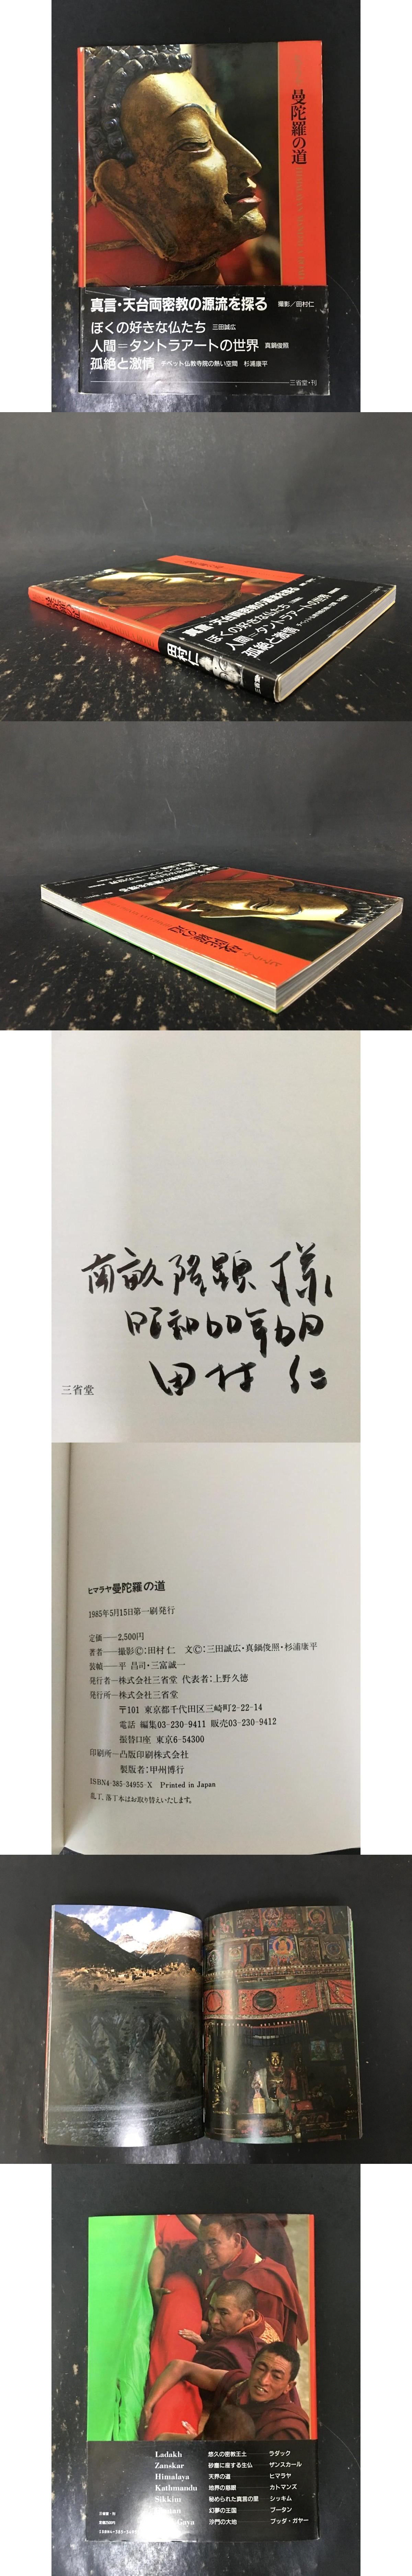 曼陀羅の道
真言・天台両密教の源流を探る 撮影／田村仁
ぼくの好きな仏たち 三田誠広
人間＝タントラアートの世界 真鍋俊照
孤絶と激情 チベット仏教寺院の熱い空間 杉浦康平
三省堂・刊
田村仁
真言・天台両密教の源流を探る
ぼくの好きな仏たち
人間＝タントラアートの世界
孤絶と激情
様
昭和60年6月
田村 仁
三省堂
ヒマラヤ曼陀羅の道
1985年5月15日第一刷発行
定価――2,500円
著者――撮影Ⓒ：田村 仁 文Ⓒ：三田誠広・真鍋俊照・杉浦康平
装幀――平 昌司・三富誠一
発行者―株式会社三省堂 代表者：上野久徳
発行所―株式会社三省堂
〒101 東京都千代田区三崎町2-22-14
電話 編集03-230-9411 販売03-230-9412
振替口座 東京6-54300
印刷所―凸版印刷株式会社
製版者：甲州博行
ISBN4-385-34955-X Printed in Japan
乱丁、落丁本はお取り替えいたします。
Ladakh 悠久の密教王土 ラダック
Zanskar 砂塵に座する生仏 ザンスカール
Himalaya 天界の道 ヒマラヤ
Kathmandu 地界の慈眼 カトマンズ
Sikkim 秘められた真言の里 シッキム
幻夢の王国 ブータン
Gaya 沙門の大地 ブッダ・ガヤー